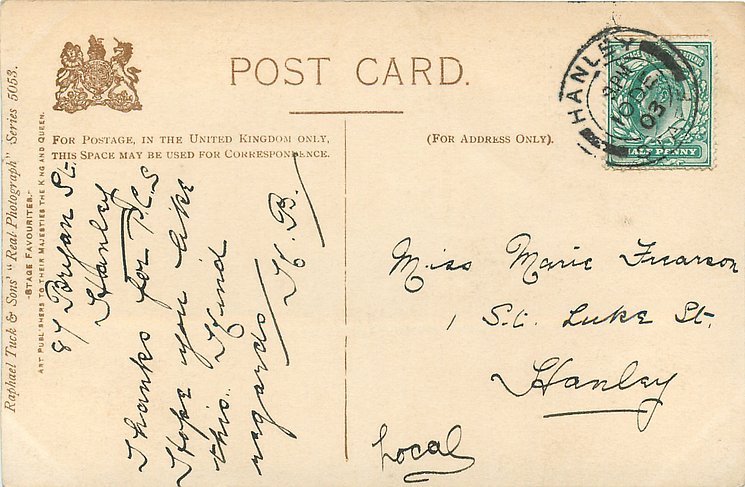 POST CARD.
FOR POSTAGE, IN THE UNITED KINGDOM ONLY,
THIS SPACE MAY BE USED FOR CORRESPONDENCE.
(FOR ADDRESS ONLY).
Raphael Tuck & Sons' "Real Photograph" Series 5053.
-STAGE FAVOURITES.-
ART PUBLISHERS TO THEIR MAJESTIES THE KING AND QUEEN.
HANLEY
10 DE
03
HALF PENNY
87 Bryan St.
Hanley
Thanks for P.C.S
Hope you like
this.. Kind
regards
H. B.
Miss Marie Frearson
1 St. Luke St.
Hanley
Local